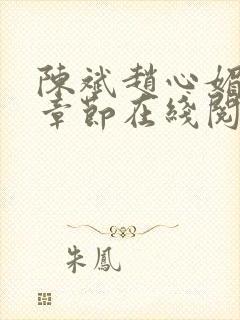 陳斌趙心媚
章節在綫閱
朱鳳